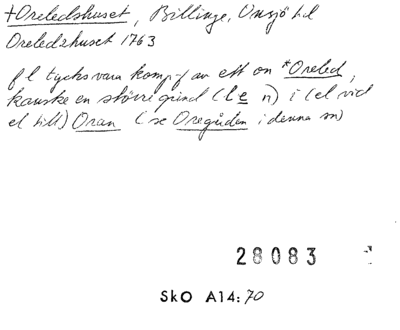 †Oreledshuset, Billinge, Onsjö hd
Oreledshuset 1763
f l tycks vara komp-f av ett on *Oreled,
kanske en större grind (le n) i (el vid
el till) Oran (se Oregården i denna sn)
28083
SkO A14:70